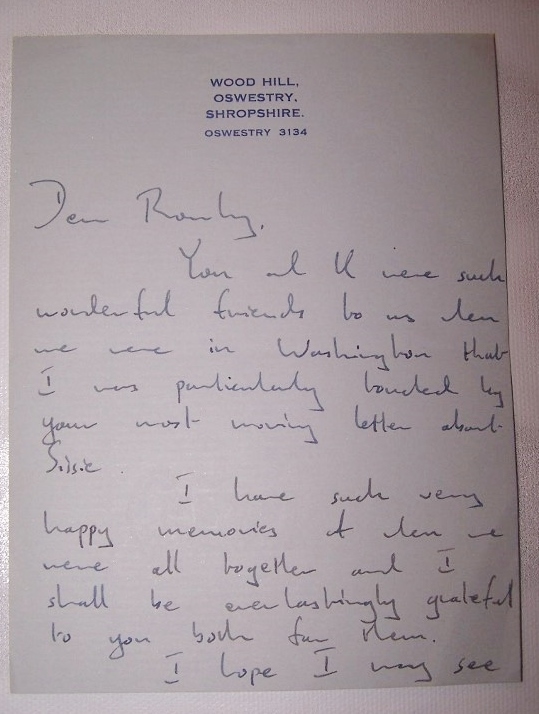 WOOD HILL,
OSWESTRY,
SHROPSHIRE.
OSWESTRY 3134
Dear
You and K were such
wonderful friends to us when
we were in Washington that
I was particularly touched by
your most moving letter about
Sisie.
I have such very
happy memories of when we
were all together and I
shall be everlastingly grateful
to you both for them.
I hope I may see